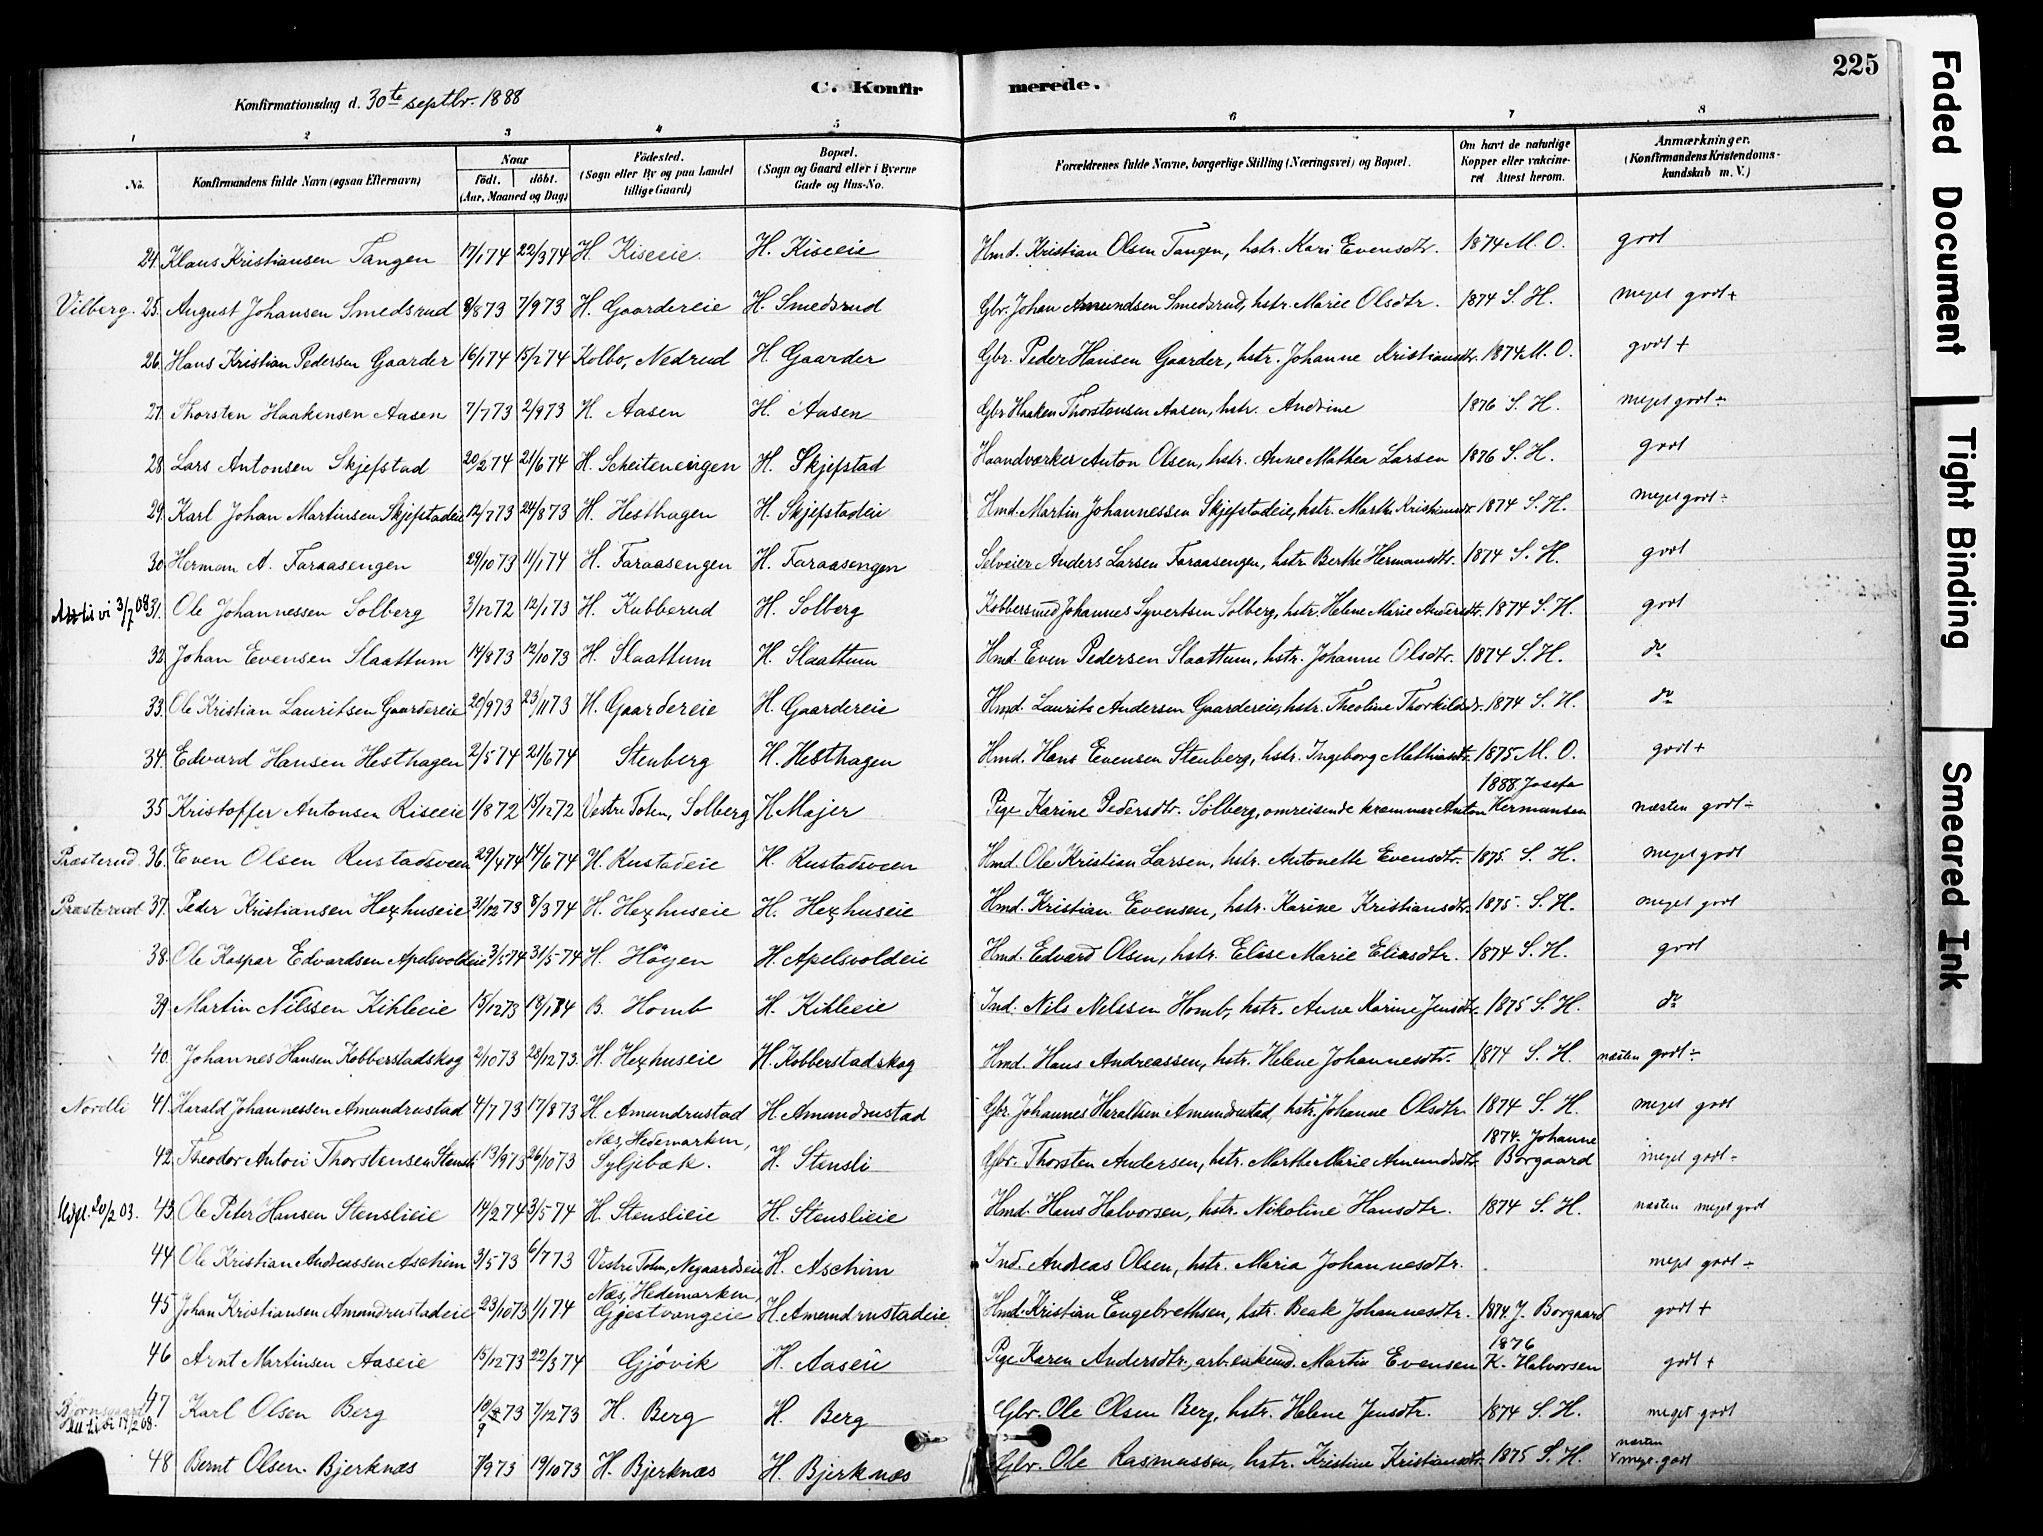 225
Konfirmationsdag d. 30te septbr. 1888 C. Konfirmerede.
1 2 3 4 5 6 7 8
No. Konfirmandens fulde Navn (ogsaa Efternavn) Naar födt. döbt. (Aar, Maaned og Dag) Födested. (Sogn eller By og paa Landet tillige Gaard) Bopæl. (Sogn og Gaard eller i Byerne Gade og Hus-No. Forældrenes fulde Navne, borgerlige Stilling (Næringsvei) og Bopæl. Om havt de naturlige Kopper eller vakcineret Attest herom. Anmærkninger. (Konfirmandens Kristendomskundskab m. V.)
24. Klaus Kristiansen Tangen 17/1 74 22/3 74 H. Kiseeie H. Kiseeie Hmd. Kristian Olsen Tangen, hstr. Kari Evensdtr. 1874 M. O. godt
Vilberg. 25. August Johansen Smedsrud 9/8 73 7/9 73 H. Gaardereie H. Smedsrud Gbr. Johan Amundsen Smedsrud, hstr. Marie Olsdtr. 1874 S. H. meget godt+
26. Hans Kristian Pedersen Gaarder 16/1 74 15/2 74 Kolbo, Nedrud H. Gaarder Gbr. Peder Hansen Gaarder, hstr. Johanne Kristiansdtr. 1874 M. O. godt +
27. Thorsten Haakensen Aasen 7/7 73 2/9 73 H. Aasen H. Aasen Gbr Haaken Thorstensen Aasen, hstr. Andrine 1876 S. H. meget godt÷
28. Lars Antonsen Skjefstad 20/2 74 21/6 74 H. Scheiteneingen H. Skjefstad Haandværker Anton Olsen, hstr. Anne Mathea Larsen 1876 S. H. godt
29. Karl Johan Martinsen Skjefstadeie 12/7 73 24/8 73 H. Hesthagen H. Skjefstadeie Hmd. Martin Johannessen Skjefstadeie, hstr. Marthe Kristiansdtr 1874 S. H. meget godt÷
30. Herman A. Faraasengen 29/10 73 11/1 74 H. Faraasengen H. Faraasengen Selveier Anders Larsen Faraasengen, hstr Berthe Hermansdtr. 1874 S. H. godt
3/7 08 31. Ole Johannessen Solberg 3/12 72 12/1 73 H. Kubberud H. Solberg Kobbersmed Johannes Syvertsen Solberg, hstr. Helene Marie Andersdtr. 1874 S. H. godt
32. Johan Evensen Slaattum 14/8 73 12/10 73 H. Slaattum H. Slaattum Hmd. Even Pedersen Slaattum, hstr. Johanne Olsdtr. 1874 S. H. do
33. Ole Kristian Lauritsen Gaardereie 20/9 73 23/11 73 H. Gaardereie H. Gaardereie Hmd. Laurits Andersen Gaardereie, hstr. Theoline Thorkildsdtr. 1874 S. H. do
34. Edvard Hansen Hesthagen 2/5 74 21/6 74 Stenberg H. Hesthagen Hmd. Hans Evensen Stenberg, hstr. Ingeborg Mathiasdtr. 1875 M. O. godt+
35. Kristoffer Antonsen Riseeie 1/8 72 15/12 72 Vestre Toten, Solberg H Majer Pige Karine Pedersdtr. Solberg, omreisende kræmmer Anton Hermansen 1888 Josefa næsten godt÷
Præsterud. 36. Even Olsen Rustadsveen 23/4 74 14/6 74 H. Rustadeie H. Rustadsveen Hmd. Ole Kristian Larsen, hstr. Antonette Evensdtr. 1875 S. H. meget godt
Præsterud 37. Peder Kristiansen Hexhuseie 31/12 73 8/3 74 H. Hexhuseie H. Hexhuseie Hmd. Kristian Evensen, hstr. Karine Kristiansdtr. 1875 S. H. meget godt
38. Ole Kaspar Edvardsen Apelsvoldeie 3/5 74 31/5 74 H. Höyen H. Apelsvoldeie Hmd. Edvard Olsen, hstr. Elise Marie Eliasdtr. 1874 S. H. godt
39. Martin Nilssen Kihleeie 15/12 73 18/1 74 B. Homb H. Kihleeie Ind. Nils Nelssen Homb, hstr. Anne Karine Jensdtr. 1875 S. H. do
40. Johannes Hansen Kobberstadskog 2/10 73 28/12 73. H. Hexhuseie H. Kobberstadskog Hmd. Hans Andreassen, hstr. Helene Johannesdtr. 1874 S. H. næsten godt÷
Nordli 41. Harald Johannessen Amundrustad 4/7 73 17/8 73 H. Amundrustad H. Amundrustad Gbr. Johannes Haraldsen Amundrustad, hstr. Johanne Olsdtr. 1874 S. H. meget godt
42. Theodor Anton Thorstensen Stensli 13/9 73 26/10 73 Næs, Hedemarken, Syljebæk. H. Stensli Gbr. Thorsten Andersen, hstr. Marthe Marie Amundsdtr. 1874. Johanne Borgaard meget godt÷
Udgt. 20/2 03. 43. Ole Peter Hansen Stenslieie 14/2 74 3/5 74 H. Stenslieie H. Stenslieie Hmd. Hans Halvorsen, hstr. Nikoline Hansdtr. 1874 S. H. næsten meget godt
44. Ole Kristian Andreassen Aschim 3/5 73 6/7 73 Vestre Toten, Nygaardseie H. Aschim Ind. Andreas Olsen, hstr. Maria Johannesdtr. meget godt ÷
45. Johan Kristiansen Amundrustadeie 23/10 73 1/1 74 Næs, Hedemarken, Gjestvangeie H. Amundrustadeie Hmd. Kristian Engebrethsen, hstr. Beate Johannesdtr. 1874. J. Borgaard godt +
46 Arnt Martinsen Aaseie 15/12 73 22/3 74 Gjövik H. Aaseie Pige Karen Andersdtr., arb. enkemd. Martin Evensen 1876 K. Halvorsen godt +
47 Karl Olsen Berg 10/9 73 7/12 73 H. Berg H. Berg Gbr. Ole Olsen Berg, hstr. Helene Jensdtr. 1874 S. H. meget godt
48 Bernt Olsen Bjerknæs 7/9 73 19/10 73 H. Bjerknæs H. Bjerknæs Gbr. Ole Rasmussen, hstr. Kristine Kristiansdtr. 1875 S. H. næsten meget godt
Faded Document
Tight Binding
Smeared Ink